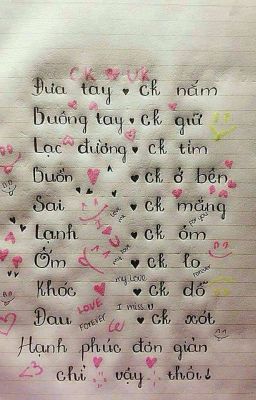 CK & VK
Đưa tay ♥ ck nắm
Buông tay ♥ ck giữ
Lạc đường ♥ ck tìm
Buồn ♥ ck ở bên
Sai ♥ ck mắng
Lạnh ♥ ck ôm
Ốm ♥ ck lo
my love
forever
Khóc ♥ ck dỗ
LOVE
I miss u
FOREVER
Đau ♥ ck xót
Hạnh phúc đơn giản
chỉ vậy thôi!